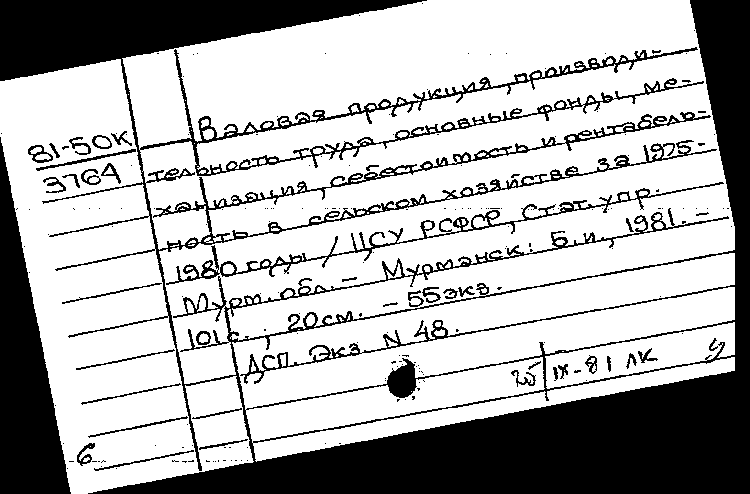 81-50К
3764
Валовая продукция, производи-
тельность труда, основные фонды, ме-
ханизация, себестоимость и рентабель-
ность в сельском хозяйстве за 1975-
1980 годы / ЦСУ РСФСР, Стат. упр.
Мурм. обл. – Мурманск: Б.и., 1981. –
101 с. ; 20 см. – 55 экз.
ДСП. Экз N 48.
25 | IX-81 ЛК
6